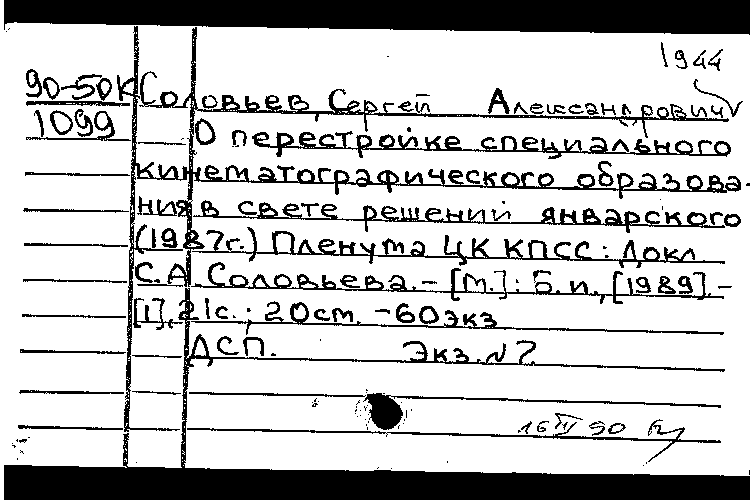 1944
90-50К Соловьев, Сергей Александрович
1099 О перестройке специального
кинематографического образова-
ния в свете решений январского
(1987г.) Пленума ЦК КПСС: Докл
С.А. Соловьева. – [М.]: Б.и., [1989]. –
[1], 21с.; 20см. – 60экз
ДСП. Экз. N 7
16 IV 90